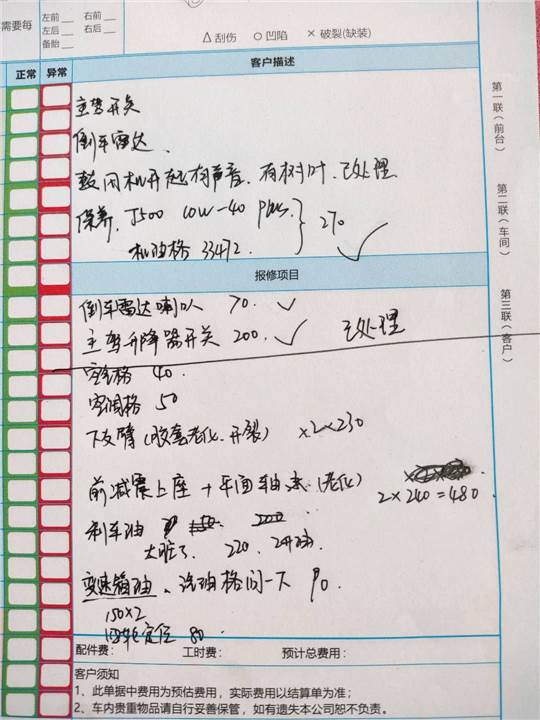 需要每
左前 右前
左后 右后
备胎
△刮伤 ○凹陷 ×破裂(缺装)
正常 异常 客户描述
主驾开关
倒车雷达.
鼓风机开起有声音.有树叶.已处理
保养. J500 10W-40 Plus.
机油格 33472. 270
报修项目
倒车雷达喇叭 70.
主驾升降器开关 200. 已处理
空气格 40.
空调格 50
下支臂(胶套老化.开裂) ×2×230
前减震上座+平面轴承(老化)
2×240=480.
刹车油
太脏了. 220.
变速箱油. 汽油格问一下 90.
150×2
四轮定位 80.
配件费: 工时费: 预计总费用:
客户须知
1、此单据中费用为预估费用,实际费用以结算单为准;
2、车内贵重物品请自行妥善保管,如有遗失本公司恕不负责。
第一联(前台)
第二联(车间)
第三联(客户)